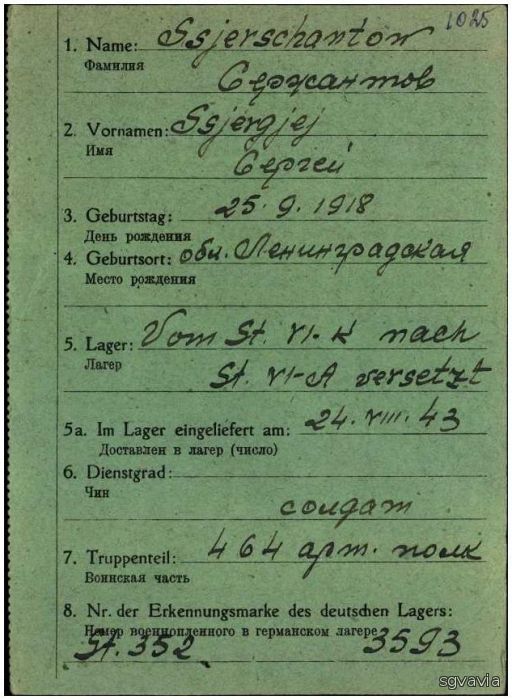 1025
1. Name: Ssjerschantow
Фамилия
Сержантов
2. Vornamen: Ssjergjej
Имя
Сергей
3. Geburtstag: 25. 9. 1918
День рождения
4. Geburtsort: обл. Ленинградская
Место рождения
5. Lager: Vom St. VI-K nach
Лагер
St. VI-A versetzt
5a. Im Lager eingeliefert am: 24. VIII. 43
Доставлен в лагер (число)
6. Dienstgrad:
Чин
солдат
7. Truppenteil: 464 арт. полк
Воинская часть
8. Nr. der Erkennungsmarke des deutschen Lagers:
Номер военнопленного в германском лагере
St. 352 3593
sgvavia